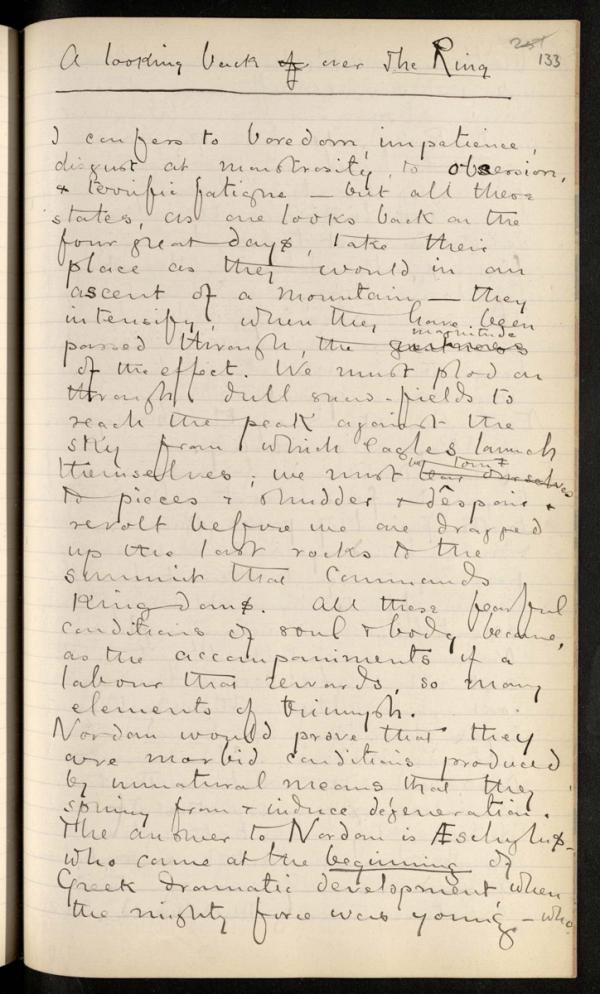 133
A looking back over the Ring
I confess to boredom, impatience,
disgust at monstrosity, to obsession,
& terrific fatigue — but all these
states, as one looks back on the
four great days, take their
place as they would in an
ascent of a mountain — they
intensify, when they have been
magnitude
passed through, the
of the effect. We must plod on
through dull snow-fields to
reach the peak against the
sky from which eagles launch
themselves; we must be torn
to pieces & shudder & despair &
revolt before we are dragged
up the last rocks to the
summit that commands
Kingdoms. All these fearful
conditions of soul & body become,
as the accompaniments of a
labour that rewards, so many
elements of triumph.
Nordau would prove that they
are morbid conditions produced
by unnatural means that they
spring from & induce degeneration.
The answer to Nordau is Æschylus -
who came at the beginning of
Greek dramatic development, when
the mighty force was young - who